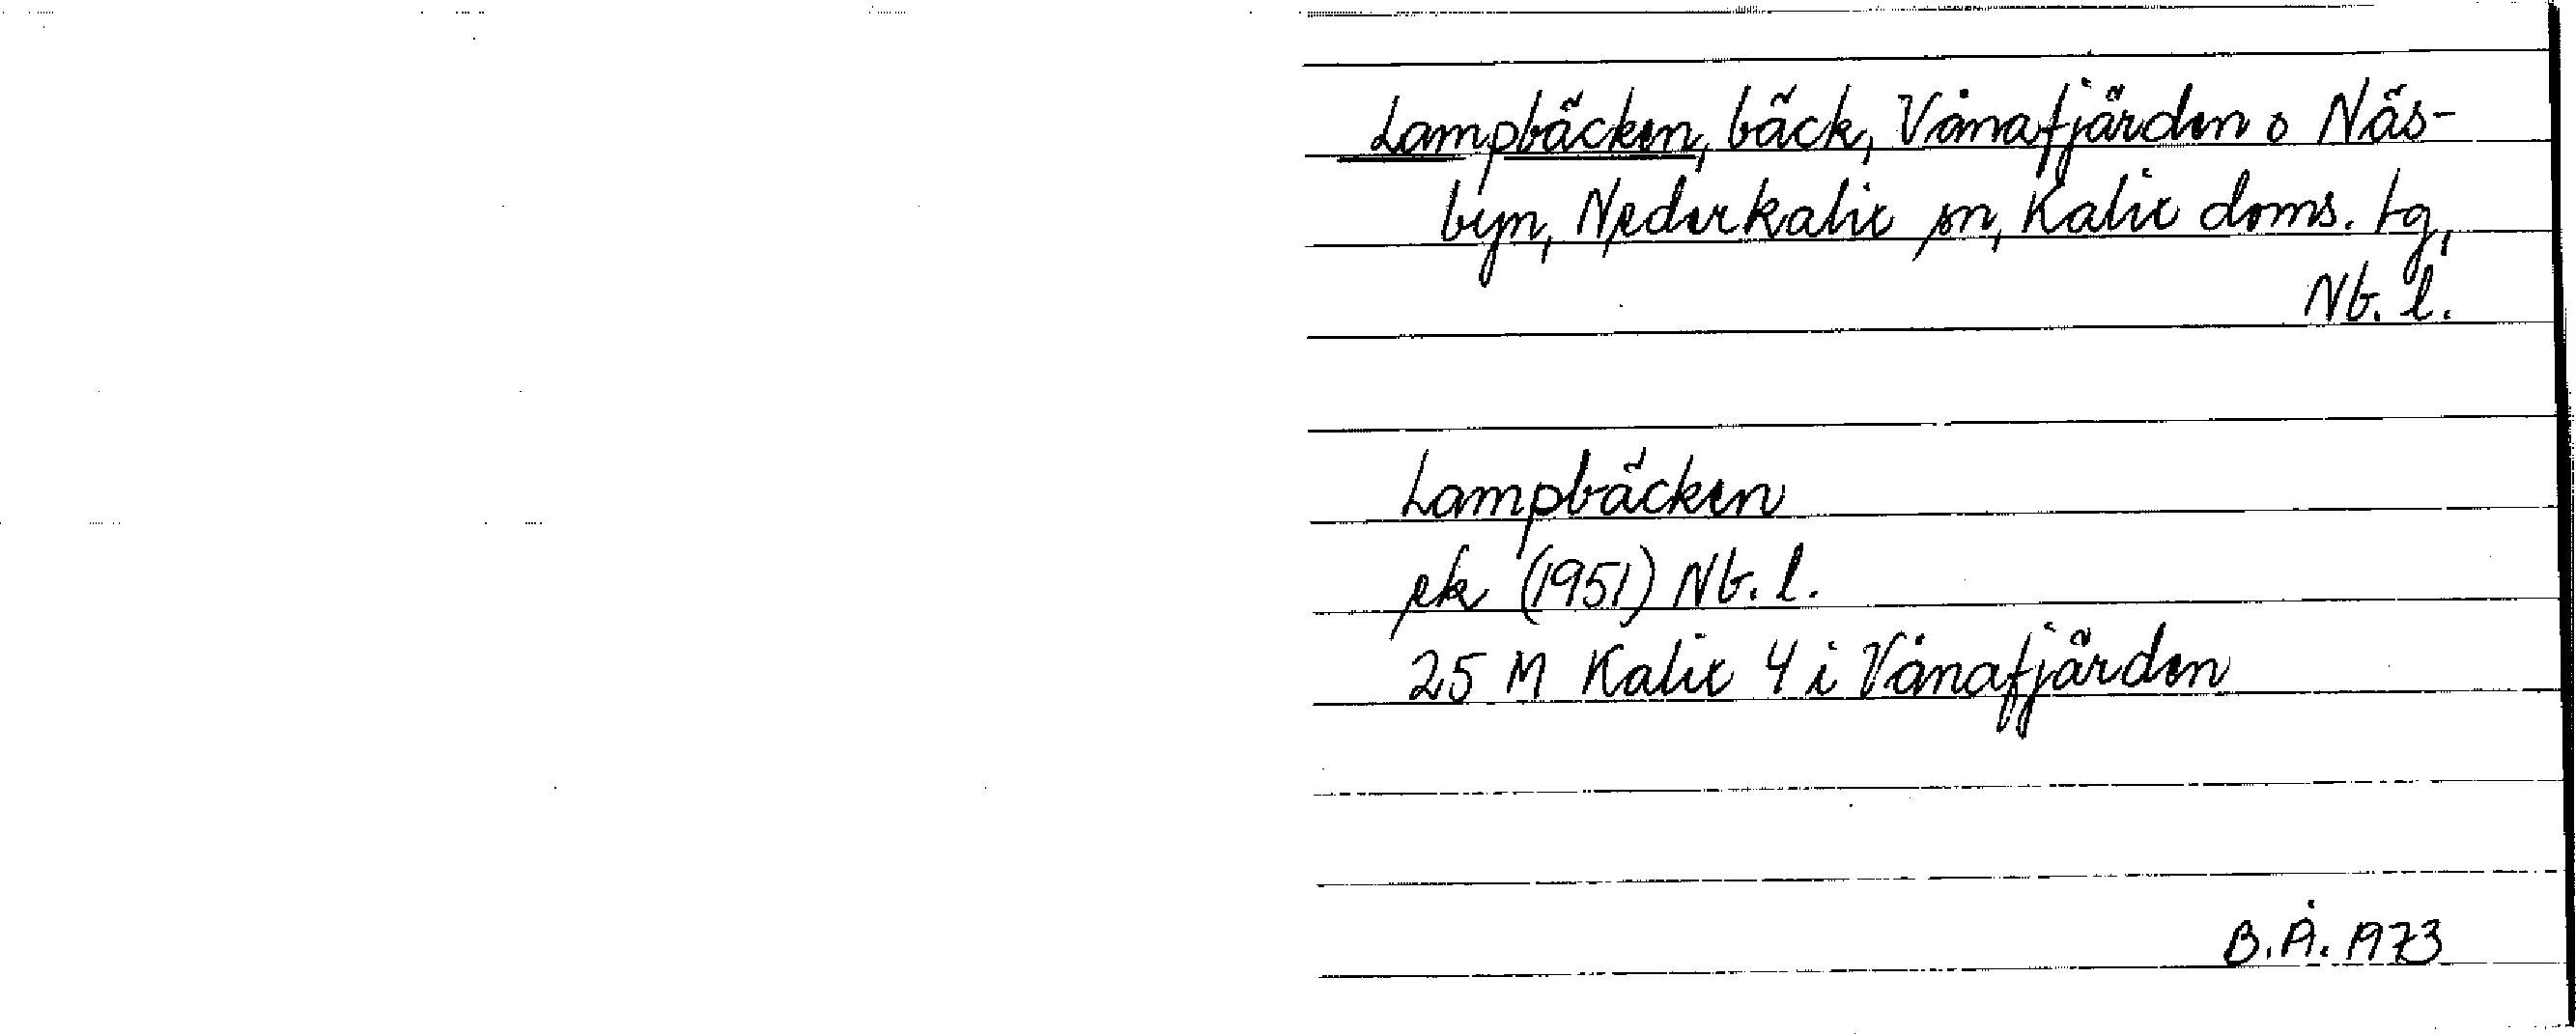 Lampbäcken, bäck, Vånafjärden o Näs-
byn, Nederkalix sn, Kalix doms. tg,
Nb. l.
Lampbäcken
ek (1951) Nb. l.
25 M Kalix 4 i Vånafjärden
B.Å. 1973